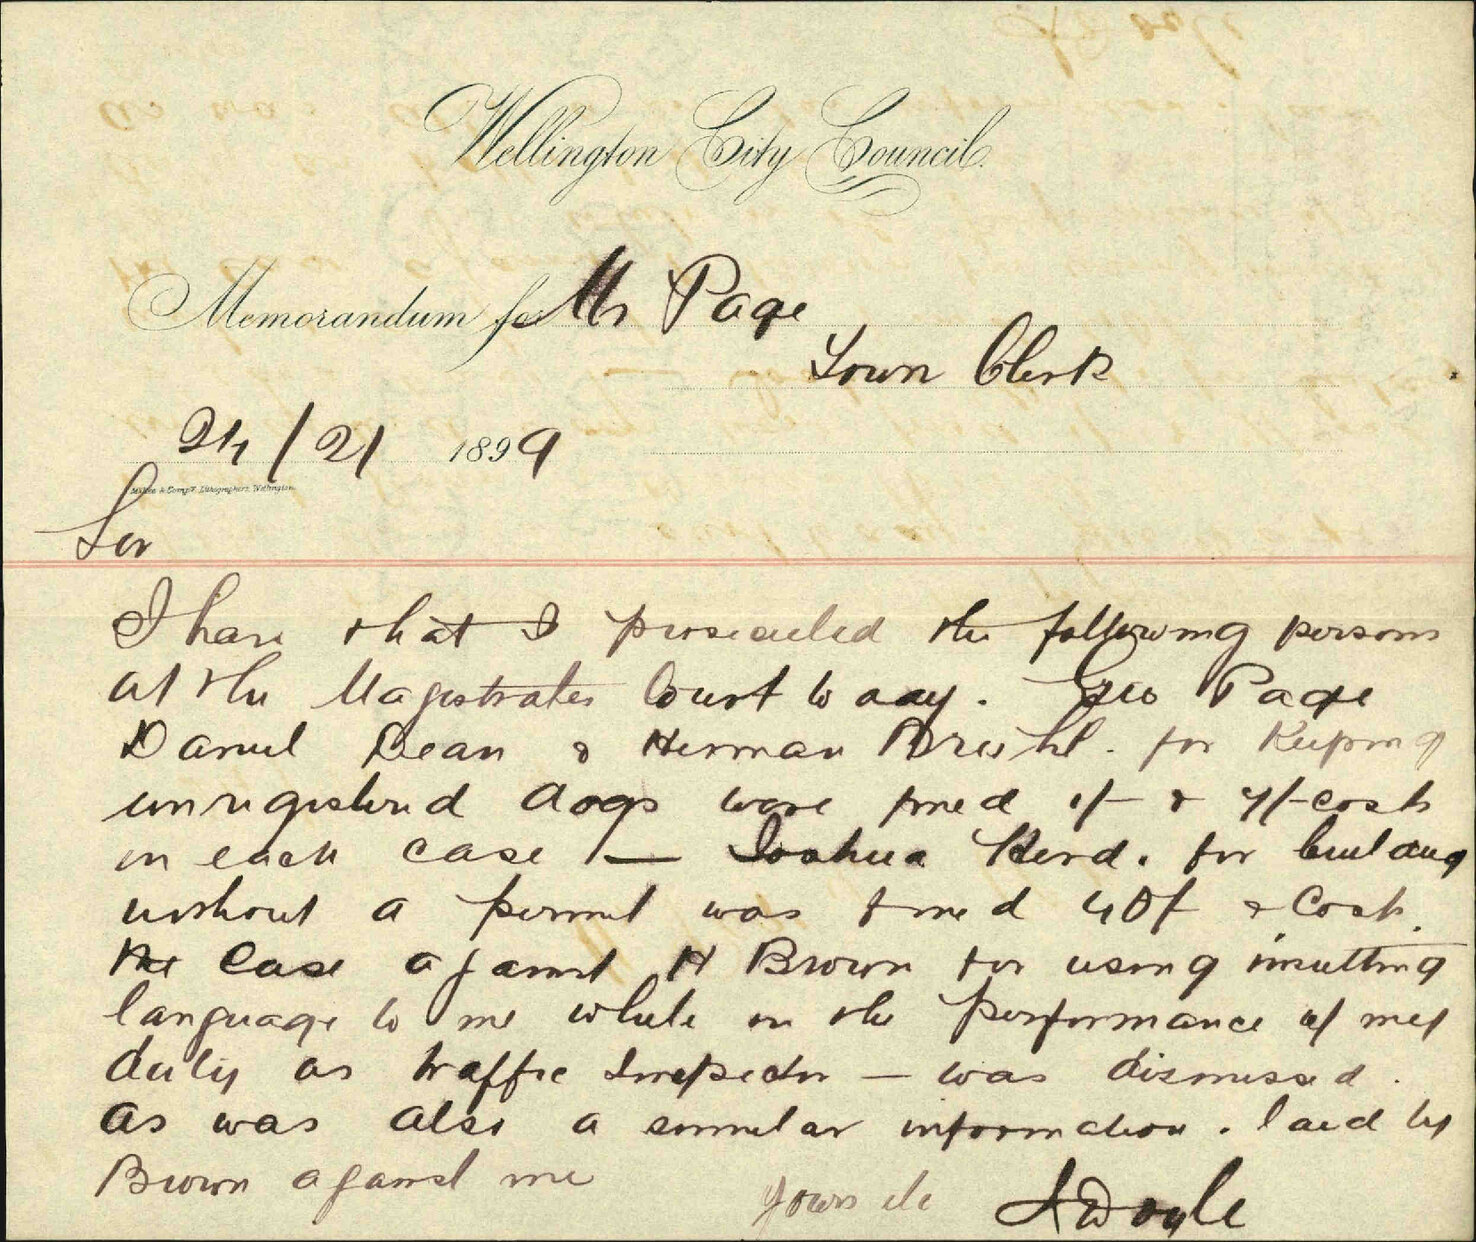 Wellington City Council.
Memorandum for Mr Page
Town Clerk
24/21 1899
Sir
I have that I prosecuted the following persons
at the Magistrates Court to day. Geo Page
Daniel Dean & Herman for Keeping
unregistered dogs were fined 1/- & 7/- costs
in each case — Joshua for building
without a permit was fined 40/- & Costs.
The Case against H Brown for using insulting
language to me while in the performance of my
duty as traffic Inspector — was dismissed.
As was also a similar information. laid by
Brown against me
yours etc Doyle